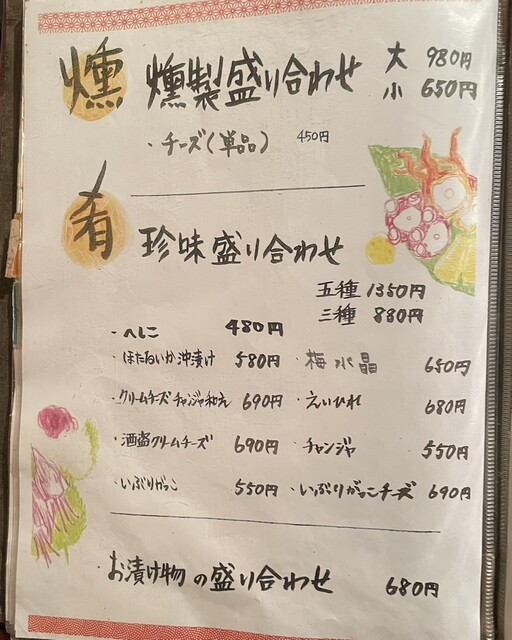 燻 燻製盛り合わせ 大 980円
小 650円
・チーズ(単品) 450円
肴 珍味盛り合わせ
五種 1350円
三種 880円
・へしこ 480円
・ほたるいか沖漬け 580円 ・梅水晶 650円
・クリームチーズチャンジャ和え 690円 ・えいひれ 680円
・酒盗クリームチーズ 690円 ・チャンジャ 550円
・いぶりがっこ 550円 ・いぶりがっこチーズ 690円
・お漬け物の盛り合わせ 680円